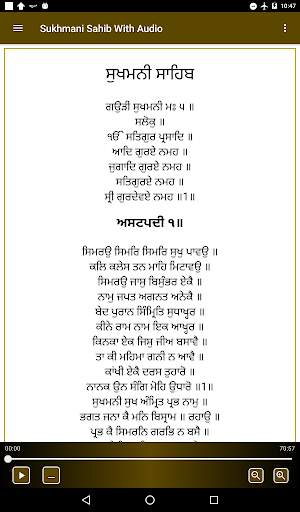 10:47
Sukhmani Sahib With Audio
ਸੁਖਮਨੀ ਸਾਹਿਬ
ਗਉੜੀ ਸੁਖਮਨੀ ਮਃ ੫ ॥
ਸਲੋਕੁ ॥
ੴ ਸਤਿਗੁਰ ਪ੍ਰਸਾਦਿ ॥
ਆਦਿ ਗੁਰਏ ਨਮਹ ॥
ਜੁਗਾਦਿ ਗੁਰਏ ਨਮਹ ॥
ਸਤਿਗੁਰਏ ਨਮਹ ॥
ਸ੍ਰੀ ਗੁਰਦੇਵਏ ਨਮਹ ॥1॥
ਅਸਟਪਦੀ ੧॥
ਸਿਮਰਉ ਸਿਮਰਿ ਸਿਮਰਿ ਸੁਖੁ ਪਾਵਉ ॥
ਕਲਿ ਕਲੇਸ ਤਨ ਮਾਹਿ ਮਿਟਾਵਉ ॥
ਸਿਮਰਉ ਜਾਸੁ ਬਿਸੁੰਭਰ ਏਕੈ ॥
ਨਾਮੁ ਜਪਤ ਅਗਨਤ ਅਨੇਕੈ ॥
ਬੇਦ ਪੁਰਾਨ ਸਿੰਮ੍ਰਿਤਿ ਸੁਧਾਖ੍ਯ੍ਯਰ ॥
ਕੀਨੇ ਰਾਮ ਨਾਮ ਇਕ ਆਖ੍ਯ੍ਯਰ ॥
ਕਿਨਕਾ ਏਕ ਜਿਸੁ ਜੀਅ ਬਸਾਵੈ ॥
ਤਾ ਕੀ ਮਹਿਮਾ ਗਨੀ ਨ ਆਵੈ ॥
ਕਾਂਖੀ ਏਕੈ ਦਰਸ ਤੁਹਾਰੋ ॥
ਨਾਨਕ ਉਨ ਸੰਗਿ ਮੋਹਿ ਉਧਾਰੋ ॥1॥
ਸੁਖਮਨੀ ਸੁਖ ਅੰਮ੍ਰਿਤ ਪ੍ਰਭ ਨਾਮੁ ॥
ਭਗਤ ਜਨਾ ਕੈ ਮਨਿ ਬਿਸ੍ਰਾਮ ॥ ਰਹਾਉ ॥
ਪ੍ਰਭ ਕੈ ਸਿਮਰਨਿ ਗਰਭਿ ਨ ਬਸੈ ॥
00:00
70:57